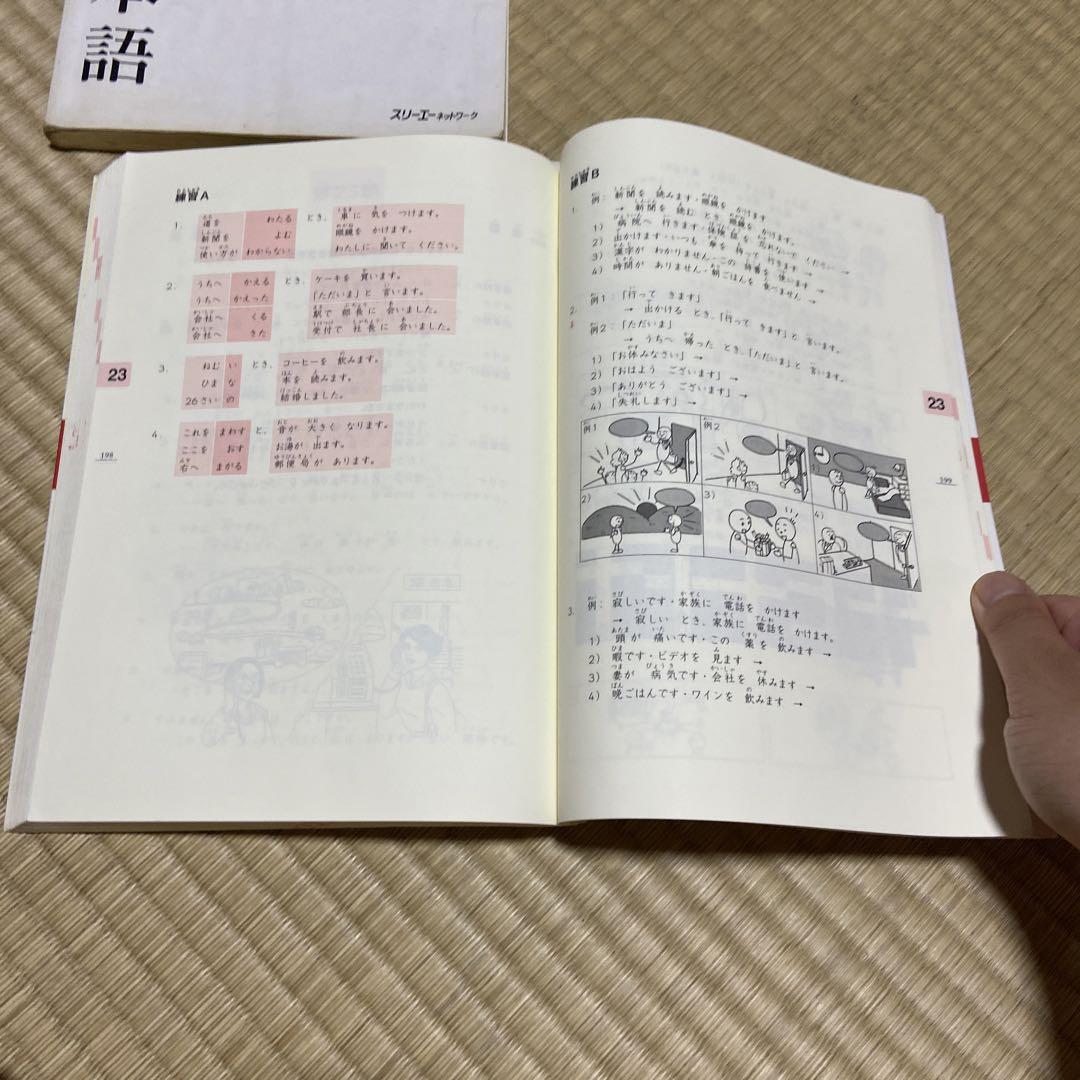 本
語
スリーエーネットワーク
練習A
1. 道を わたる とき、 車に 気を つけます。
新聞を よむ 眼鏡を かけます。
使い方が わからない わたしに 聞いて ください。
2. うちへ かえる とき、 ケーキを 買います。
うちへ かえった 「ただいま」と 言います。
会社へ くる 駅で 部長に 会いました。
会社へ きた 受付で 社長に 会いました。
3. ねむ い とき、 コーヒーを 飲みます。
ひま な 本を 読みます。
26さい の 結婚しました。
4. これを まわす と、 音が 大きく なります。
ここを おす お湯が 出ます。
右へ まがる 郵便局が あります。
23
198
練習B
1. 例：新聞を 読みます・眼鏡を かけます
→ 新聞を 読む とき、眼鏡を かけます。
1) 病院へ 行きます・保険証を 忘れないで ください →
2) 出かけます・いつも 傘を 持って 行きます →
3) 漢字が わかりません・この 辞書を 使います →
4) 時間が ありません・朝ごはんを 食べません →
2. 例1：「行って きます」
→ 出かける とき、「行って きます」と 言います。
例2：「ただいま」
→ うちへ 帰った とき、「ただいま」と 言います。
1) 「お休みなさい」 →
2) 「おはよう ございます」 →
3) 「ありがとう ございます」 →
4) 「失礼します」 →
例1 例2 1)
2) 3) 4)
3. 例：寂しいです・家族に 電話を かけます
→ 寂しい とき、家族に 電話を かけます。
1) 頭が 痛いです・この 薬を 飲みます →
2) 暇です・ビデオを 見ます →
3) 妻が 病気です・会社を 休みます →
4) 晩ごはんです・ワインを 飲みます →
23
199